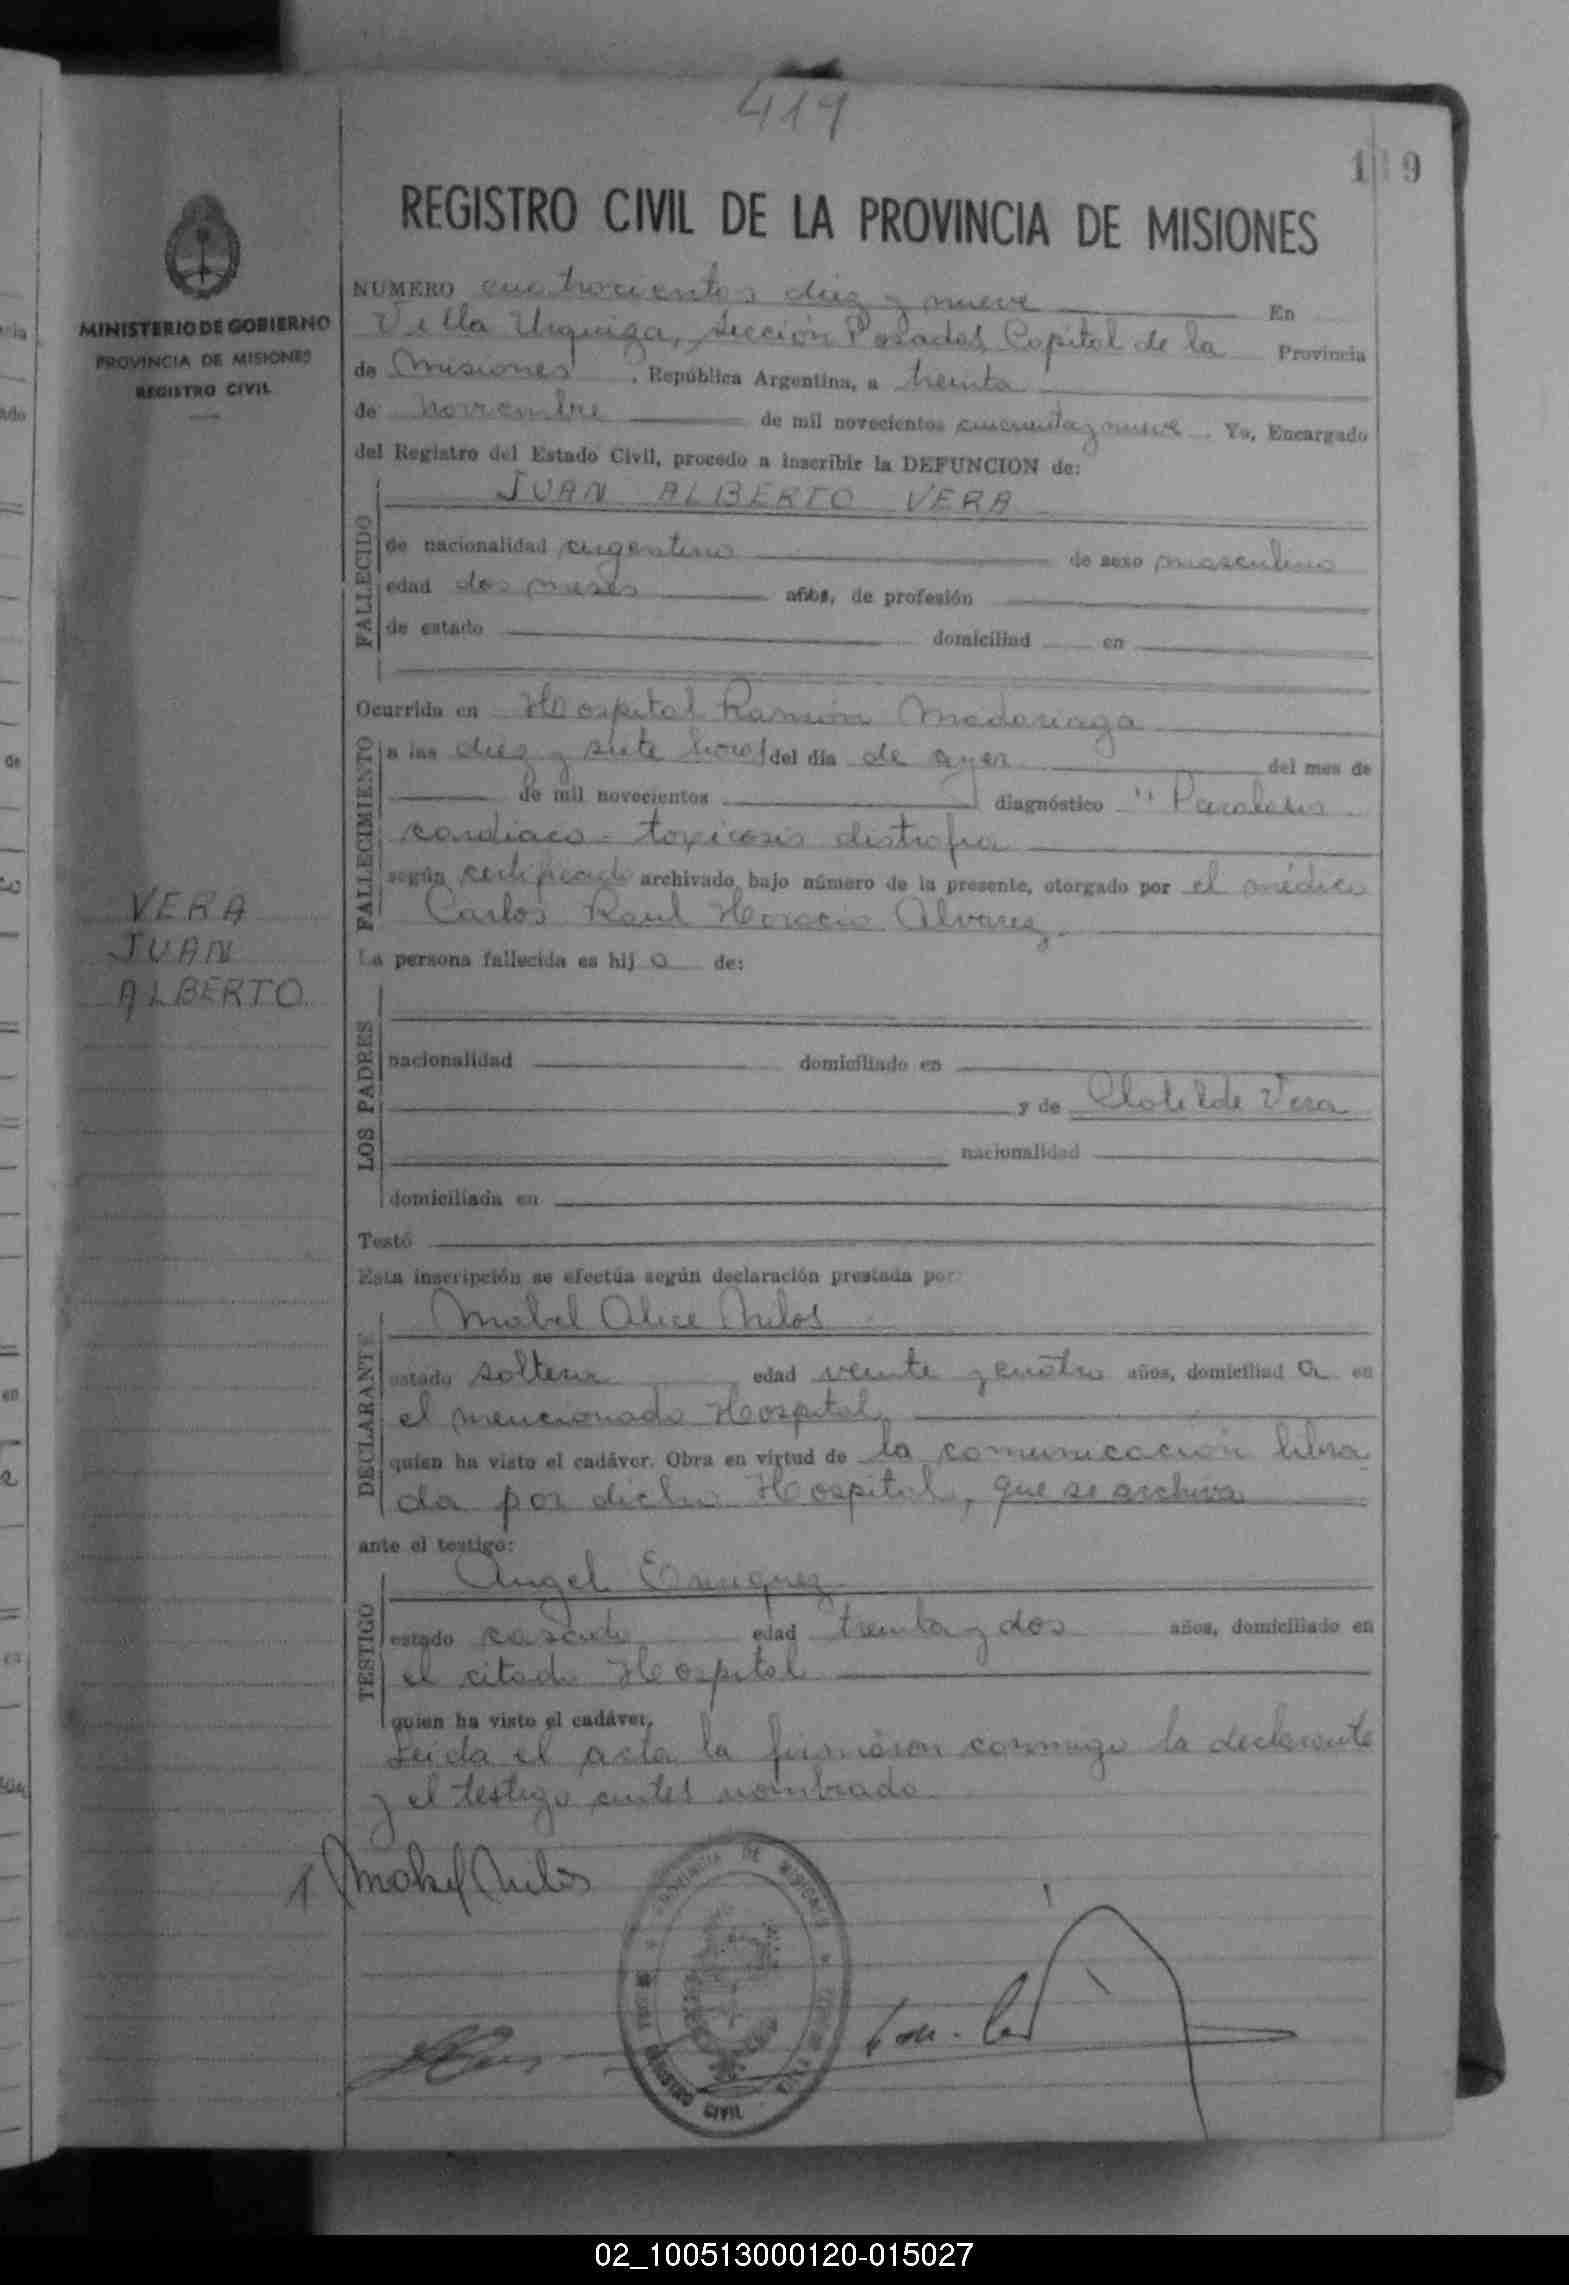 419
1 9
REGISTRO CIVIL DE LA PROVINCIA DE MISIONES
MINISTERIO DE GOBIERNO
PROVINCIA DE MISIONES
REGISTRO CIVIL
NUMERO cuatrocientos diez y nueve En
Villa Urquiza, sección Posadas, Capital de la Provincia
de Misiones, República Argentina, a treinta
de noviembre de mil novecientos cincuenta y nueve. Yo, Encargado
del Registro del Estado Civil, procedo a inscribir la DEFUNCION de:
JUAN ALBERTO VERA
FALLECIDO
de nacionalidad argentino de sexo masculino
edad dos meses años, de profesión
de estado domiciliad en
Ocurrida en Hospital Ramón Madariaga
FALLECIMIENTO
a las diez y siete horas del día de ayer del mes de
de mil novecientos diagnóstico "Paralisis
cardiaca - toxicosis distrofia
según certificado archivado bajo número de la presente, otorgado por el médico
Carlos Raul Horacio Alvarez.
VERA
JUAN
ALBERTO
La persona fallecida es hij o de:
LOS PADRES
nacionalidad domiciliado en
y de Clotilde Vera
nacionalidad
domiciliada en
Testó
Esta inscripción se efectúa según declaración prestada por:
Mabel Alice
DECLARANTE
estado soltera edad veinte y cuatro años, domiciliad a en
el mencionado Hospital,
quien ha visto el cadáver. Obra en virtud de la comunicación libra
da por dicho Hospital, que se archiva
ante el testigo:
Angel Enriquez
TESTIGO
estado casado edad treinta y dos años, domiciliado en
el citado Hospital
quien ha visto el cadáver.
Leida el acta la firmaron conmigo la declarante
y el testigo antes nombrado.
Mabel
PROVINCIA DE MISIONES
REGISTRO CIVIL
02_100513000120-015027